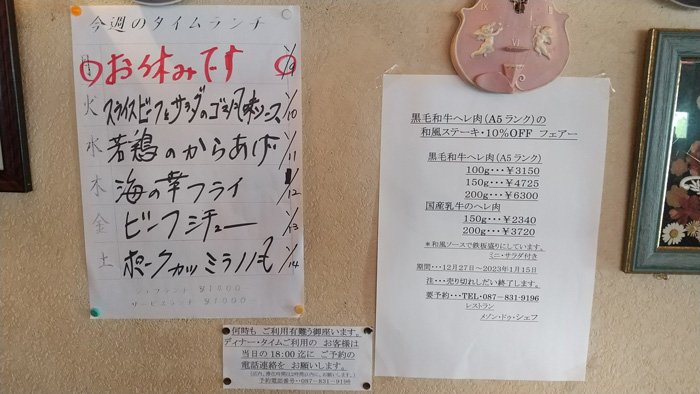 今週のタイムランチ
月 お休みです 1/9
火 スライスビーフとサラダのゴマ風味ソース 1/10
水 若鶏のからあげ 1/11
木 海の幸フライ 1/12
金 ビーフシチュー 1/13
土 ポークカツミラノ風 1/14
サービスランチ ¥1000
黒毛和牛ヘレ肉(A5ランク)の
和風ステーキ・10%OFF フェアー
黒毛和牛ヘレ肉(A5ランク)
100g・・・¥3150
150g・・・¥4725
200g・・・¥6300
国産乳牛のヘレ肉
150g・・・¥2340
200g・・・¥3720
*和風ソースで鉄板盛りにしています。
ミニ・サラダ付き
期間・・・12月27日~2023年1月15日
注・・・売り切れしだい終了します。
要予約・・・TEL・087-831-9196
レストラン
メゾン・ドゥ・シェフ
何時も ご利用有難う御座います。
ディナー・タイムご利用の お客様は
当日の18:00迄に ご予約の
電話連絡を お願いします。
予約電話番号・・087-831-9196